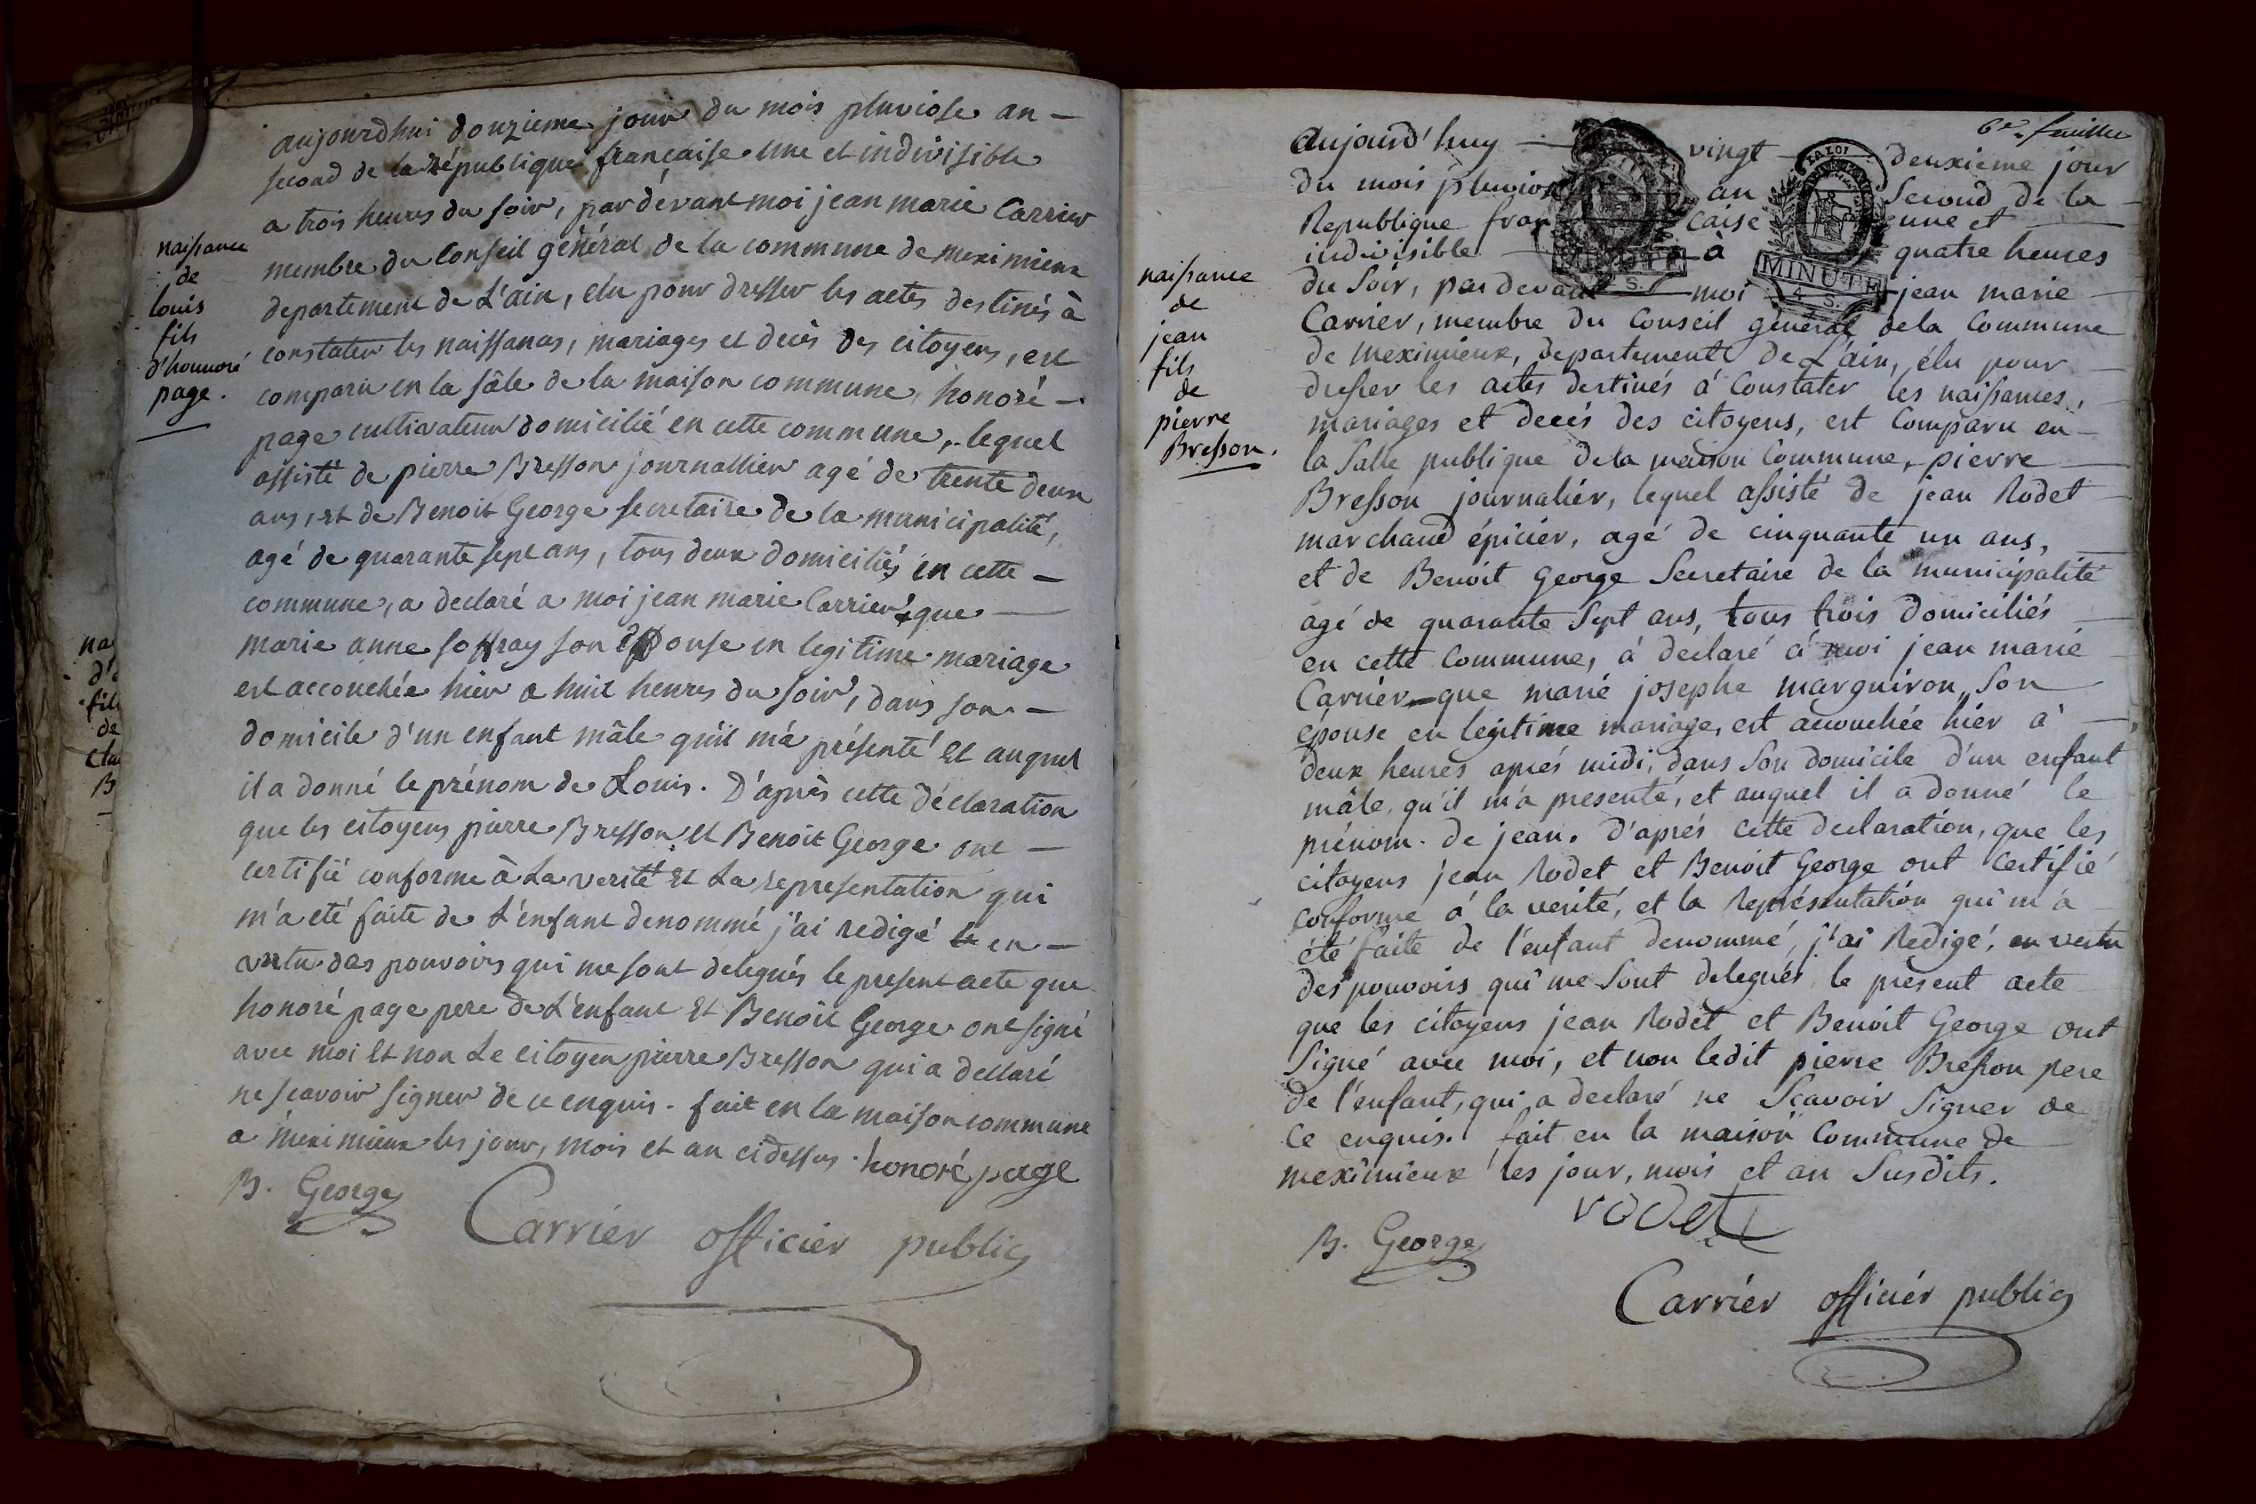 aujourdhui douzieme jour du mois pluviose an
second de la république française une et indivisible
a trois heures du soir, pardevant moi jean marie Carrier
membre du Conseil général de la commune de meximieux
departement de L'ain, élu pour dresser les actes destinés à
constater les naissances, mariages et decès des citoyens, est
comparu en la sâle de la maison commune, honoré
page cultivateur domicilié en cette commune, lequel
assisté de pierre Bresson journallier agé de trente deux
ans, et de Benoit George secretaire de la municipalité,
agé de quarante sept ans, tous deux domiciliés en cette
commune, a declaré a moi jean marie Carrier que
marie anne soffray son épouse en legitime mariage
est accouchée hier a huit heures du soir, dans son
domicile d'un enfant mâle qu'il m'a présenté et auquel
il a donné le prénom de Louis. D'après cette déclaration
que les citoyens pierre Bresson et Benoit George ont
certifié conforme à La verité et La representation qui
m'a eté faite de L'enfant denommé j'ai redigé en
vertu des pouvoirs qui me sont delegués le present acte que
honoré page pere de L'enfant et Benoit George ont signé
avec moi et non Le citoyen pierre Bresson qui a declaré
ne scavoir signer de ce enquis. fait en la maison commune
a meximieux les jour, mois et an cidessus. honoré page
B. George
Carrier officier public
naissance
de
louis
fils
d'honnoré
page.
na
d'
fils
de
Cla
B
6e. feuillet
Aujourd'huy vingt deuxieme jour
du mois pluviose an Second de la
Republique francaise une et
indivisible à quatre heures
du Soir, pardevant moi jean marie
Carrier, membre du Conseil general dela Commune
de meximieux, departement de L'ain, élu pour
dresser les actes destinés à Constater les naissances,
mariages et decés des citoyens, est Comparu en
la Salle publique dela maison Commune, pierre
Bresson journalier, lequel assisté de jean Rodet
marchand épicier, agé de cinquante un ans,
et de Benoit George Secretaire de la municipalité
agé de quarante Sept ans, tous trois domiciliés
en cette Commune, à declaré à moi jean marie
Carrier que marie josephe marguiron, Son
épouse en legitime mariage, est accouchée hier à
deux heures aprés midi, dans Son domicile d'un enfant
mâle, qu'il m'a presenté, et auquel il a donné le
prénom de jean. D'aprés cette declaration, que les
citoyens jean Rodet et Benoit George ont Certifié
conforme à la verité, et la Représentation qui m'a
été faite de l'enfant denommé, j'ai Redigé, en vertu
des pouvoirs qui me Sont delegués le présent acte
que les citoyens jean Rodet et Benoit George ont
Signé avec moi, et non ledit pierre Bresson pere
de l'enfant, qui a declaré ne Scavoir Signer de
Ce enquis. fait en la maison Commune de
meximieux les jour, mois et an Susdits.
rodet
B. George
Carriér officiér public
naissance
de
jean
fils
de
pierre
Bresson.
LA LOI
MINUTE
4 S.
MINUTE
S.